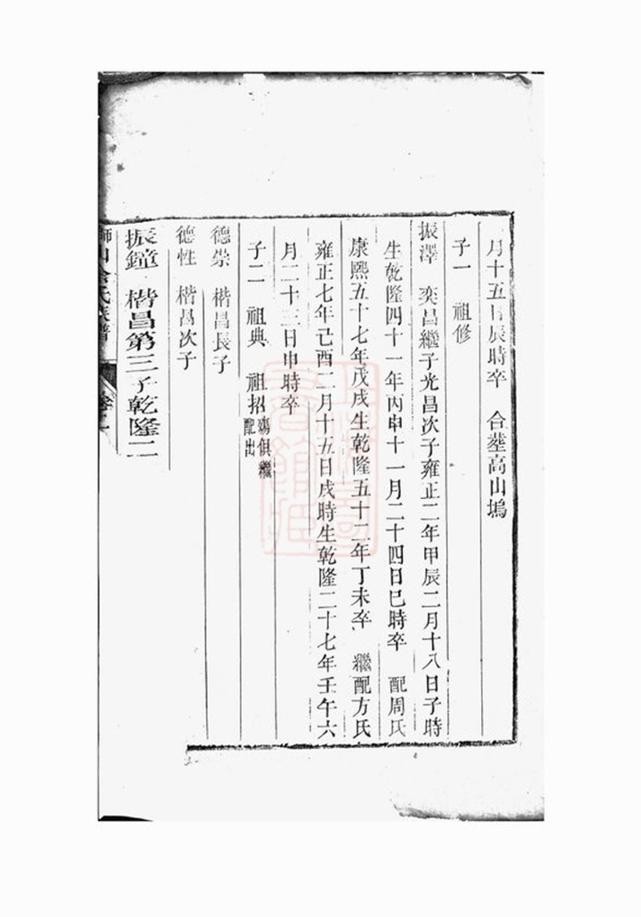 月十五日辰時卒　合塟高山塢
子一　祖修
振澤　奕昌繼子光昌次子雍正二年甲辰二月十八日子時
生乾隆四十一年丙申十一月二十四日巳時卒　配周氏
康熙五十七年戊戌生乾隆五十二年丁未卒　繼配方氏
雍正七年己酉二月十五日戌時生乾隆二十七年壬午六
月二十三日申時卒
子二　祖典　祖招
鴻俱繼
配出
德崇　楷昌長子
德性　楷昌次子
振鐘　楷昌第三子乾隆二
氏族譜